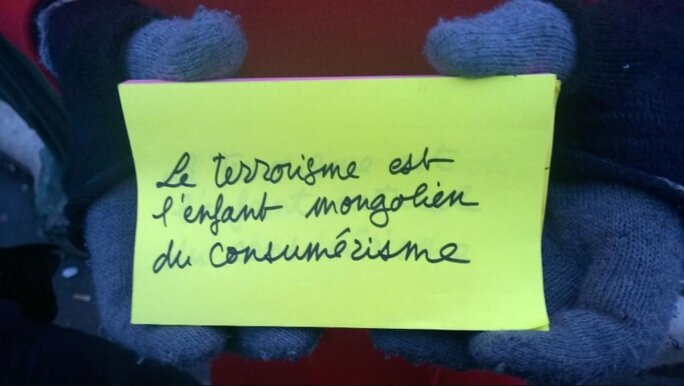 Le terrorisme est
l'enfant mongolien
du consumérisme